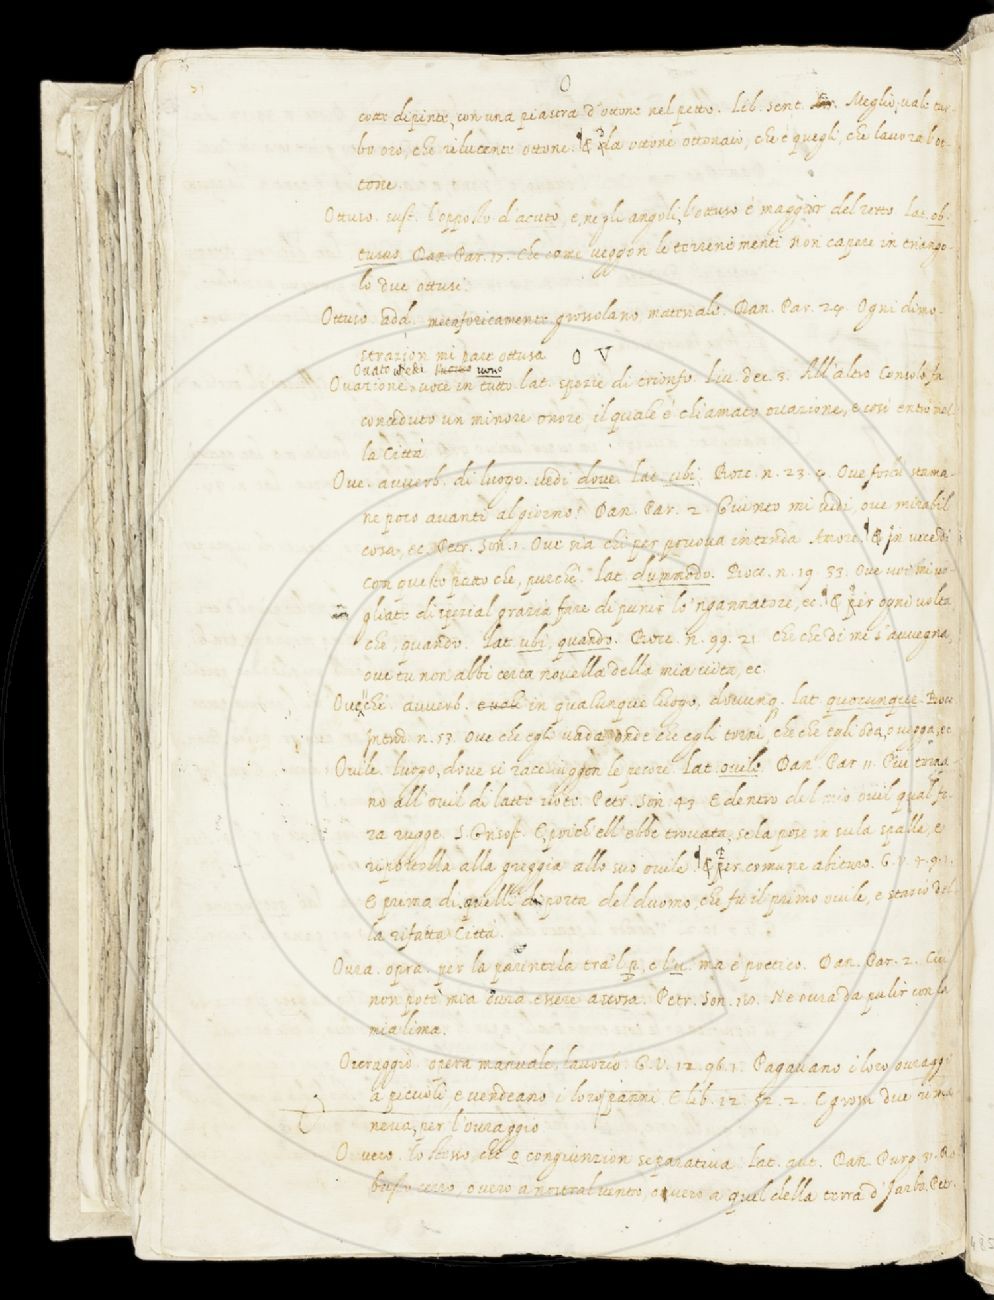 O
cotto dipinto, con una piastra d'ottone nel petto. Lib. sent. Meglio vale tur-
bo oro, che rilucente ottone. & da ottone ottonaio, che è quegli, che lavora l'ot-
tone.
Ottuso. sust. l'opposto d'acuto, e, negli angoli, l'ottuso è maggior del retto. Lat. ob-
tusus. Dan. Par. 17. Che come veggion le terrene menti Non capere in triango-
lo due ottusi.
Ottuso. add. metaforicamente grossolano materiale. Dan. Par. 24. Ogni dimo-
strazion mi pare ottusa
O V
Ovato vedi uovo
Ovazione, voce in tutto lat. spezie di trionfo. Liv. dec. 3. All'altro Consolo fu
conceduto un minore onore il quale è chiamato ovazione, e così entrò nel-
la Città
Ove. avverb. di luogo. vedi dove. Lat. ubi. Bocc. n. 23. 4. Ove fosti stama-
ne poco avanti al giorno? Dan. Par. 2. Giunto mi vidi, ove mirabil
cosa, ec. Petr. Son. 1. Ove sia chi per pruova intenda Amore. & in vece di
con questo patto che, purchè. Lat. dummodo. Bocc. n. 19. 33. Ove voi mi vo-
gliate di spezial grazia fare di punir lo 'ngannatore, ec. & per ogni volta
che, quando. Lat. ubi, quando. Bocc. n. 99. 21. Che che di me s'avvegna,
ove tu non abbi certa novella della mia vita, ec.
Ove che avverb. in qualunque luogo, dovunq. Lat. quocunque. Bocc.
Introd. n. 53. Ove che egli vada onde che egli torni, che che egli oda, o vegga, ec
Ovile. luogo, dove si racchiuggon le pecore. Lat. ovile. Dan. Par. 11. Più torna-
no all'ovil di latte vote. Petr. Son. 43. E dentro del mio ovil qual fie-
ra rugge. S. Grisost. E, poich' ell' ebbe trovata, se la pose in su la spalla, e
riportolla alla greggia allo suo ovile. & per comune abituro. G. V. 4. 9. 1.
E prima di quelli di porta del duomo, che fu il primo ovile, e stazio del-
la rifatta Città.
Ovra. opra. per la parentela tra 'l p, e l'u. ma è poetico. Dan. Par. 2. Cui
non potè mia ovra essere ascosa. Petr. Son. 18. Ne ovra da pulir con la
mia lima.
Ovraggio. opera manuale, lavorio. G. V. 12. 96. 1. Pagavano i loro ovraggi
a piccioli, e vendeano i loro panni. E lib. 12. 52. 2. E grossi due rima-
neva, per l'ovraggio
Overo. lo stesso, che o congiunzion separativa. Lat. aut. Dan. Purg. 31. Ro-
busto cerro, overo a nostral vento, overo a quel della terra d'Jarba. Petr.